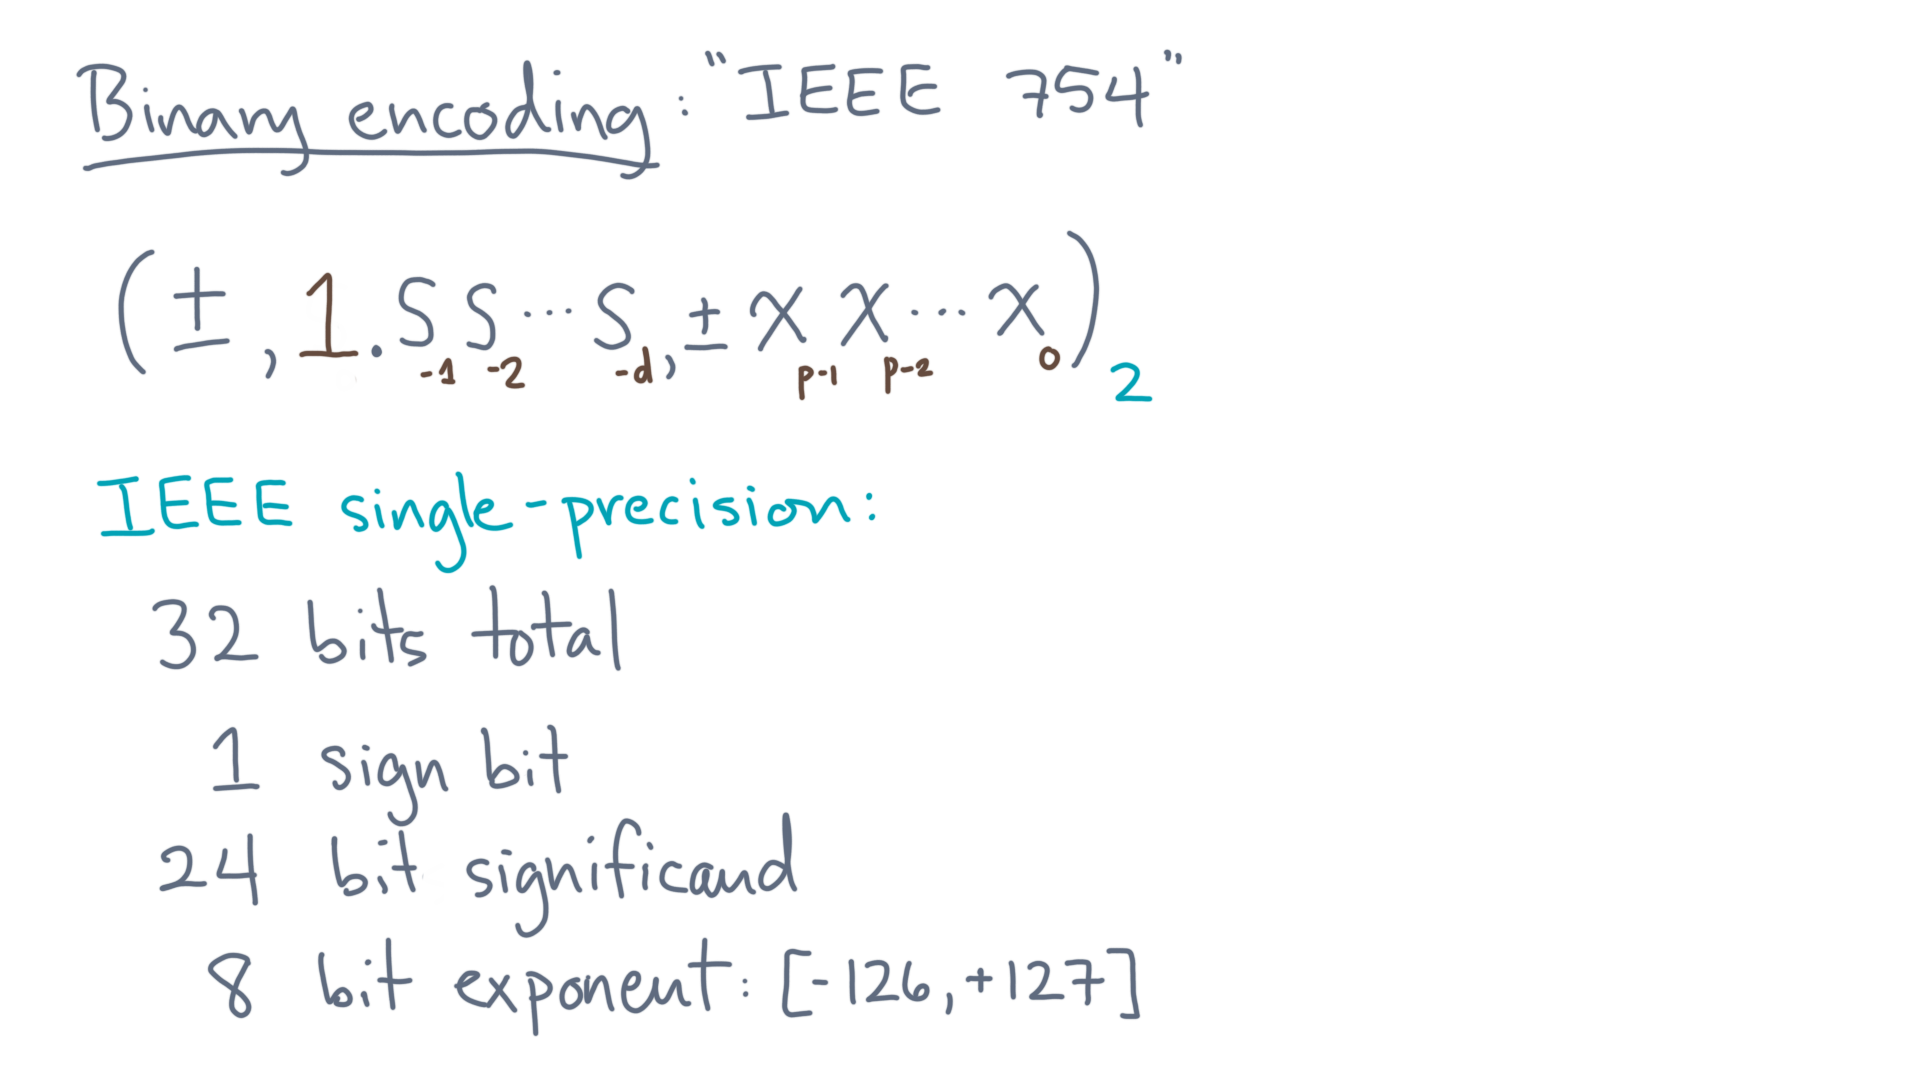 Binary encoding: "IEEE 754"
(±, 1.S₋₁S₋₂⋯S₋d, ±xₚ₋₁xₚ₋₂⋯x₀)₂
IEEE single-precision:
32 bits total
1 sign bit
24 bit significand
8 bit exponent: [-126, +127]